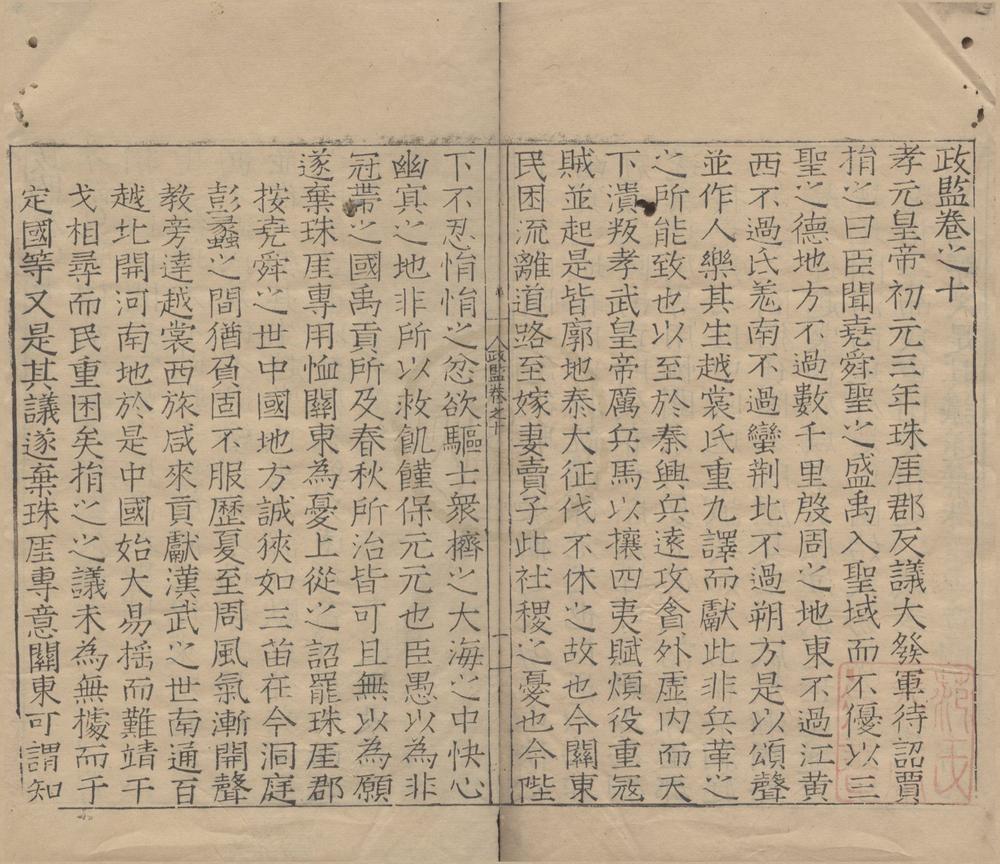 政監卷之十
孝元皇帝初元三年珠厓郡反議大發軍待詔賈
捐之曰臣聞堯舜聖之盛禹入聖域而不優以三
聖之德地方不過數千里殷周之地東不過江黃
西不過氐羌南不過蠻荆北不過朔方是以頌聲
並作人樂其生越裳氏重九譯而獻此非兵革之
之所能致也以至於秦興兵遠攻貪外虛内而天
下潰叛孝武皇帝厲兵馬以攘四夷賦煩役重冦
賊並起是皆廓地泰大征伐不休之故也今關東
民困流離道路至嫁妻賣子此社稷之憂也今陛
政監卷之十
一
下不忍悁悁之忿欲驅士衆擠之大海之中快心
幽㝠之地非所以救飢饉保元元也臣愚以為非
冠帶之國禹貢所及春秋所治皆可且無以為願
遂棄珠厓專用恤關東為憂上從之詔罷珠厓郡
按堯舜之世中國地方誠狹如三苗在今洞庭
彭蠡之間猶負固不服歷夏至周風氣漸開聲
教旁達越裳西旅咸來貢獻漢武之世南通百
越北開河南地於是中國始大易揺而難靖干
戈相尋而民重困矣捐之之議未為無據而于
定國等又是其議遂棄珠厓專意關東可謂知